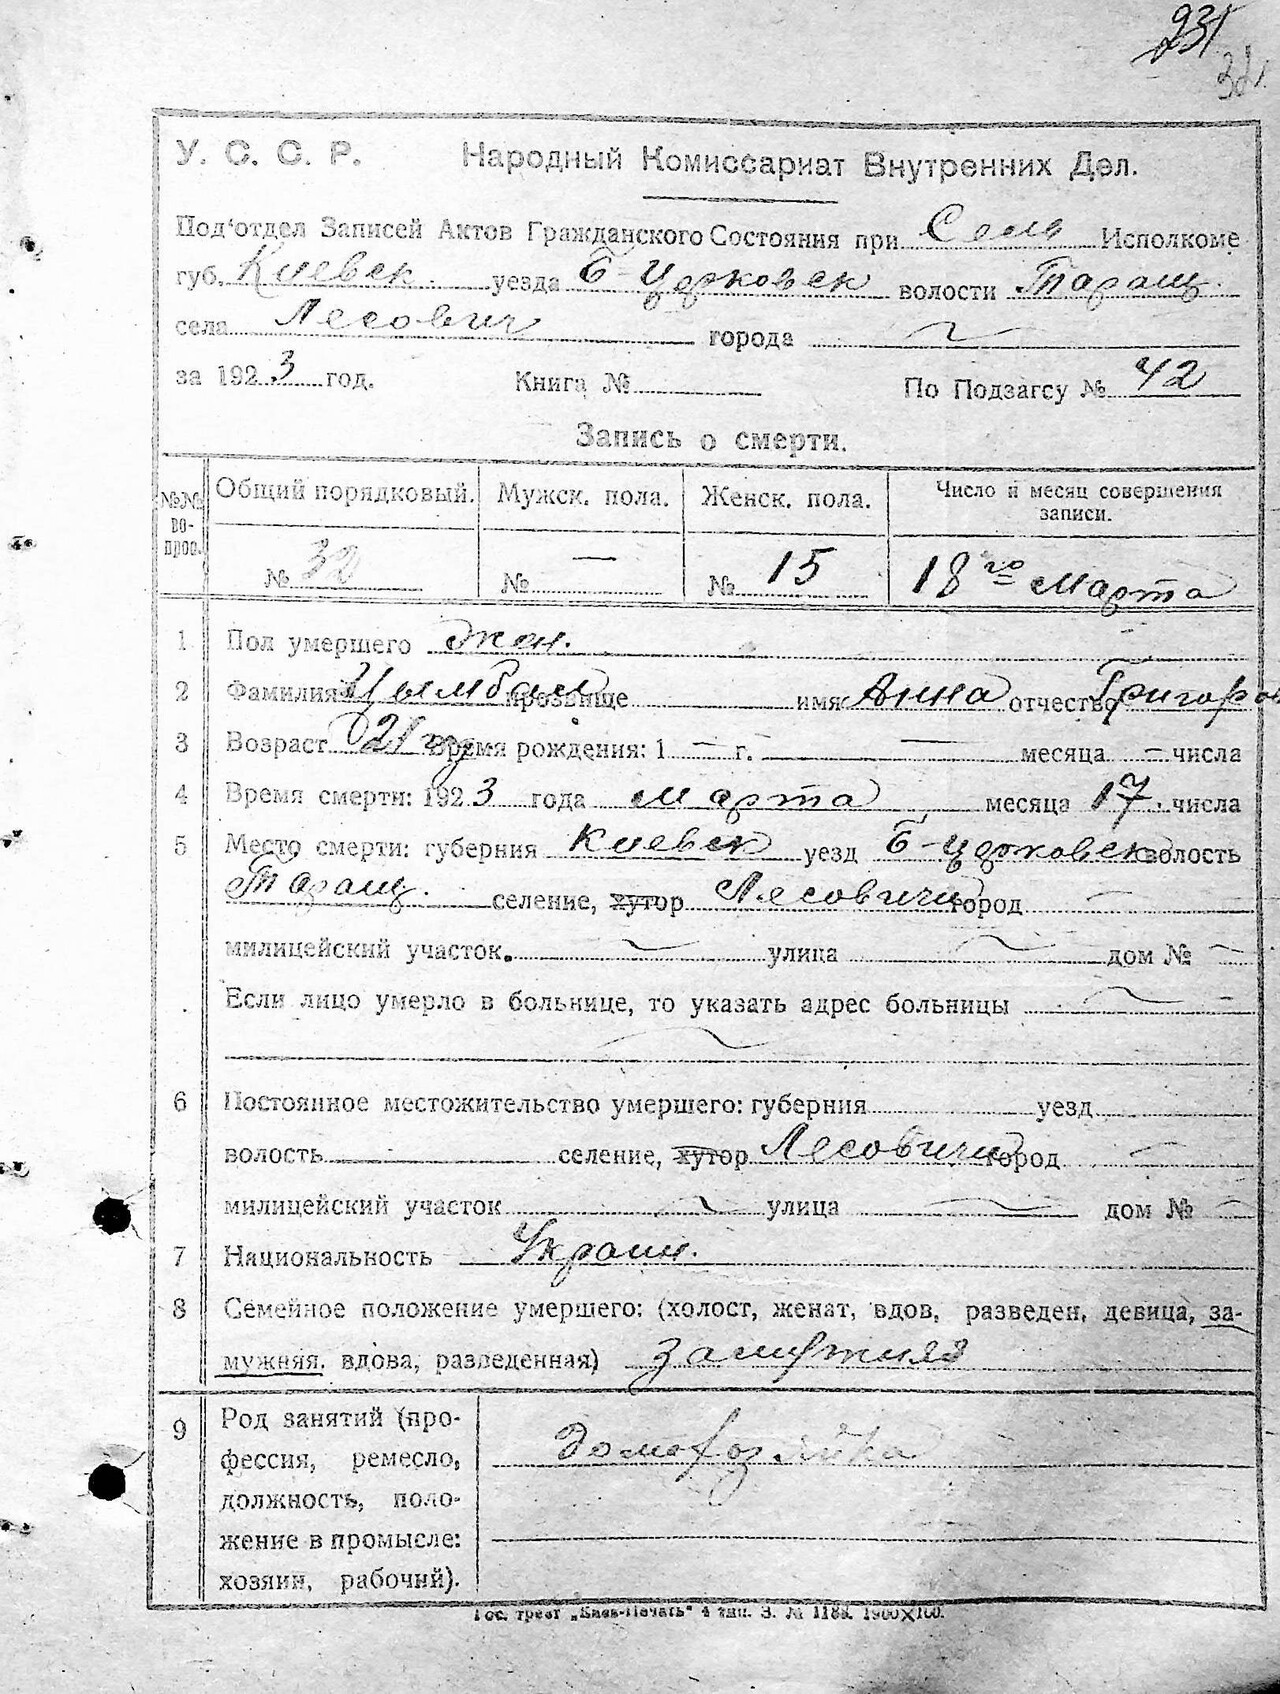 231
32
У. С. С. Р. Народный Комиссариат Внутренних Дел.
Под'отдел Записей Актов Гражданского Состояния при Сель Исполкоме
губ. Киевск. уезда Б-Церковск волости Таращ.
села Лесович города
за 1923 год. Книга № По Подзагсу № 42
Запись о смерти.
№№ вопрос. Общий порядковый. Мужск. пола. Женск. пола. Число и месяц совершения записи.
№ 32 № — № 15 18го Марта
1 Пол умершего Жен.
2 Фамилия Цымбал прозвище имя Анна отчество Григоров
3 Возраст 21 год Время рождения: 1 — г. — месяца — числа
4 Время смерти: 1923 года марта месяца 17 числа
5 Место смерти: губерния Киевск уезд Б-Церковск волость
Таращ. селение, хутор Лесовичи город
милицейский участок. улица дом №
Если лицо умерло в больнице, то указать адрес больницы
6 Постоянное местожительство умершего: губерния уезд
волость селение, хутор Лесовичи город
милицейский участок улица дом №
7 Национальность Украин.
8 Семейное положение умершего: (холост, женат, вдов, разведен, девица, за-
мужняя, вдова, разведенная) замужняя
9 Род занятий (про-
фессия, ремесло, домохозяйка
должность, поло-
жение в промысле:
хозяин, рабочий).
Гос. трест „Киев-Печать“ 4 тип. З. № 1188. 1900×100.